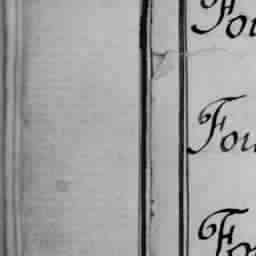 Fou
Fou
Fo